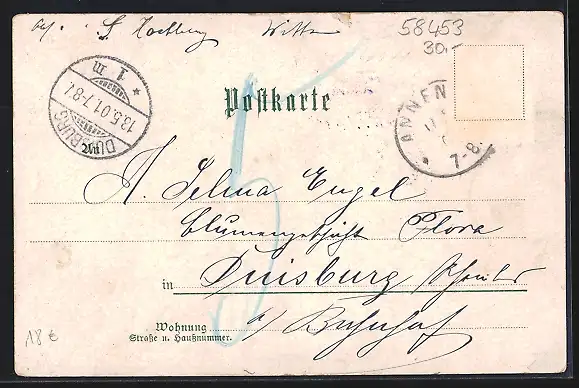 58453
30.-
DUISBURG
13.5.01.7-8V.
1 m
ANNEN
7-8
Postkarte
Selma Engel
Blumengeschäft Flora
in Duisburg
a/ Bahnhof
Wohnung
Straße u. Hausnummer.
18 €
5